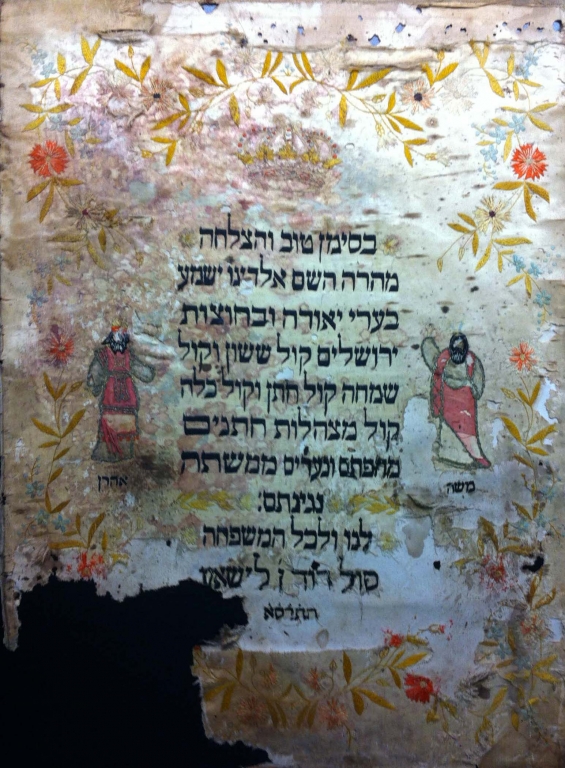 בסימן טוב והצלחה
מהרה השם אלדינו ישמע
בערי יאודה ובחוצות
ירושלים קול ששון וקול
שמחה קול חתן וקול כלה
קול מצהלות חתנים
מחפתם ונערים ממשתה
משה
אהרן
נגינתם:
לנו ולכל המשפחה
סול דוד ן
התרסא